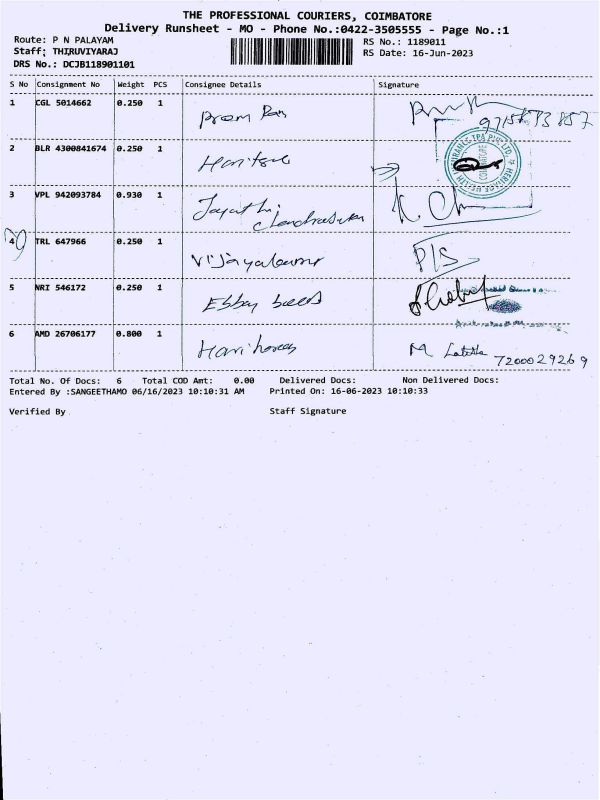 THE PROFESSIONAL COURIERS, COIMBATORE
Delivery Runsheet - MO - Phone No.:0422-3505555 - Page No.:1
Route: P N PALAYAM
Staff: THIRUVIYARAJ
DRS No.: DCJB118901101
RS No.: 1189011
RS Date: 16-Jun-2023
S No Consignment No Weight PCS Consignee Details Signature
1 CGL 5014662 0.250 1 Prem
2 BLR 4300841674 0.250 1
COIMBATORE
3 VPL 942093784 0.930 1 Jayathi
4 TRL 647966 0.250 1 P/S
5 NRI 546172 0.250 1 Ebbey
6 AMD 26706177 0.800 1 M 7200029269
Total No. Of Docs: 6 Total COD Amt: 0.00 Delivered Docs: Non Delivered Docs:
Entered By :SANGEETHAMO 06/16/2023 10:10:31 AM Printed On: 16-06-2023 10:10:33
Verified By Staff Signature